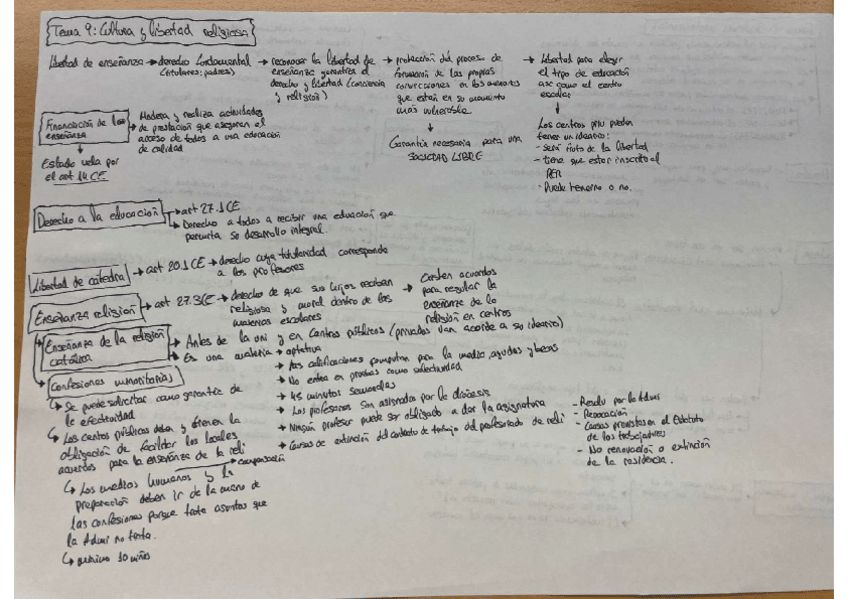 Tema 9: Cultura y libertad religiosa
Libertad de enseñanza → derecho fundamental
(titulares: padres)
→ reconocer la libertad de
enseñanza garantiza el
derecho y libertad (conciencia
y religión)
→ protección del proceso de
formación de las propias
convicciones en los menores
que están en su momento
más vulnerable
↓
Garantía necesaria para una
SOCIEDAD LIBRE
→ Libertad para elegir
el tipo de educación
así como el centro
escolar
↓
Los centros priv pueden
tener un ideario:
- será fruto de la libertad
- tiene que estar inscrito el
RER
- Puede tenerno o no.
Financiación de la
enseñanza
→ y realiza actividades
de prestación que aseguren el
acceso de todos a una educación
de calidad
↓
Estado vela por
el art 14 CE
Derecho a la educación
→ art 27.1 CE
→ Derecho a todos a recibir una educación que
permita su desarrollo integral.
Libertad de cátedra → art 20.1 CE → derecho cuya titularidad corresponde
a los profesores
Enseñanza religión → art 27.3 CE → derecho de que sus hijos reciban
religiosa y moral dentro de las
materias escolares
→ Existen acuerdos
para regular la
enseñanza de la
religión en centros
Enseñanza de la religión
católica
→ Antes de la uni y en centros públicos (privados van acorde a su ideario)
→ Es una materia → optativa
→ Las calificaciones computan para la media, ayudas y becas
→ No entra en pruebas como selectividad
→ 45 minutos semanales
→ Los profesores son asignados por la diócesis
→ Ningún profesor puede ser obligado a dar la asignatura
→ Causas de extinción del contrato de trabajo del profesorado de reli
- por la Admi
- Revocación
- Causas previstas en el Estatuto
de los trabajadores
- No renovación o extinción
de la residencia.
Confesiones minoritarias
↳ Se puede solicitar como garantía de
la efectividad
↳ Los centros públicos y tienen la
obligación de facilitar los locales
para la enseñanza de la reli
↳ Los medios humanos y la → compensación
preparación deben ir de la mano de
las confesiones porque trata asuntos que
la Admi no trata.
↳ mínimo 10 niños